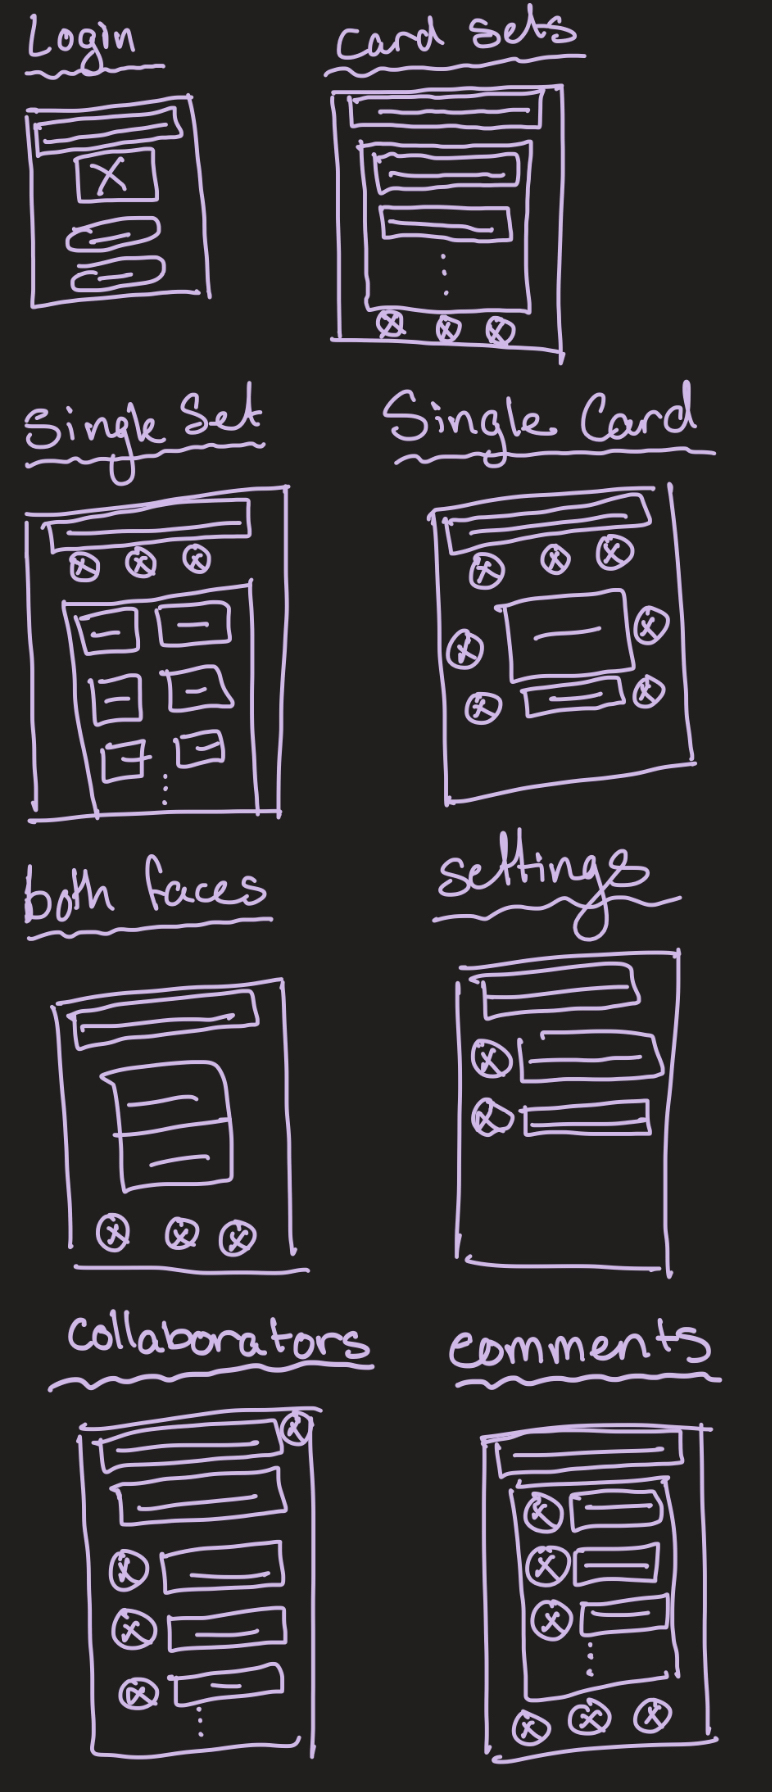 Login
Card sets
Single Set
Single Card
both faces
settings
Collaborators
comments